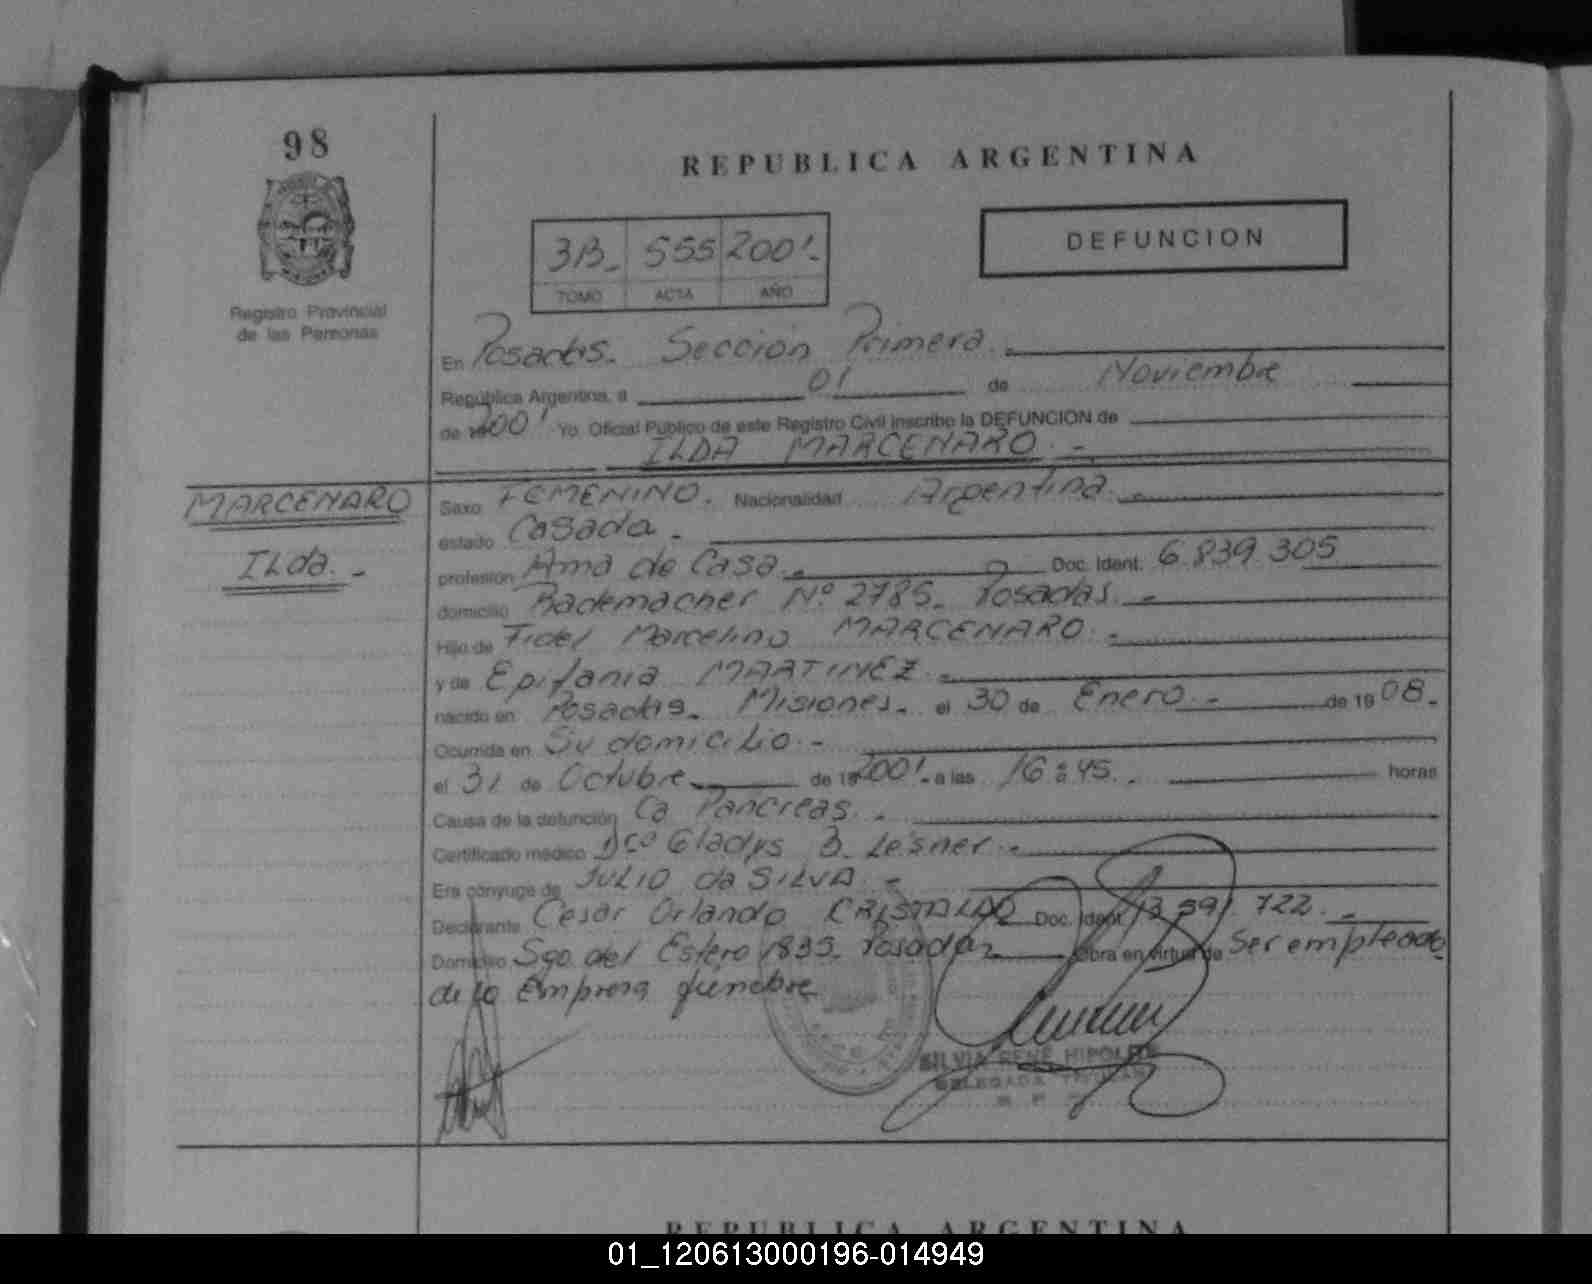 98
REPUBLICA ARGENTINA
Registro Provincial
de las Personas
3B. 555 2001.
TOMO ACTA AÑO
DEFUNCION
En Posadas. Sección Primera.
República Argentina, a 01 de Noviembre
de 2001 Yo, Oficial Público de este Registro Civil inscribo la DEFUNCION de
ILDA MARCENARO. -
MARCENARO
ILda. -
Sexo FEMENINO. Nacionalidad Argentina. -
estado Casada. -
profesión Ama de Casa. - Doc. Ident. 6.839.305
domicilio Rademacher Nº 2785. Posadas. -
Hijo de Fidel Marcelino MARCENARO. -
y de Epifania MARTINEZ. -
nacido en Posadas. Misiones. el 30 de Enero. - de 1908. -
Ocurrida en Su domicilio. -
el 31 de Octubre de 2001. a las 16:45. horas
Causa de la defunción Ca Pancreas. -
Certificado médico Dra Gladys B. Lesner. -
Era cónyuge de JULIO da SILVA -
Declarante Cesar Orlando CRISTALDO Doc. Ident. 13.591.722. -
Domicilio Sgo. del Estero 1835. Posadas Obra en virtud de Ser empleado
de la Empresa fúnebre
SILVIA RENÉ HIPOLITO
DELEGADA TITULAR
REPUBLICA ARGENTINA
01_120613000196-014949